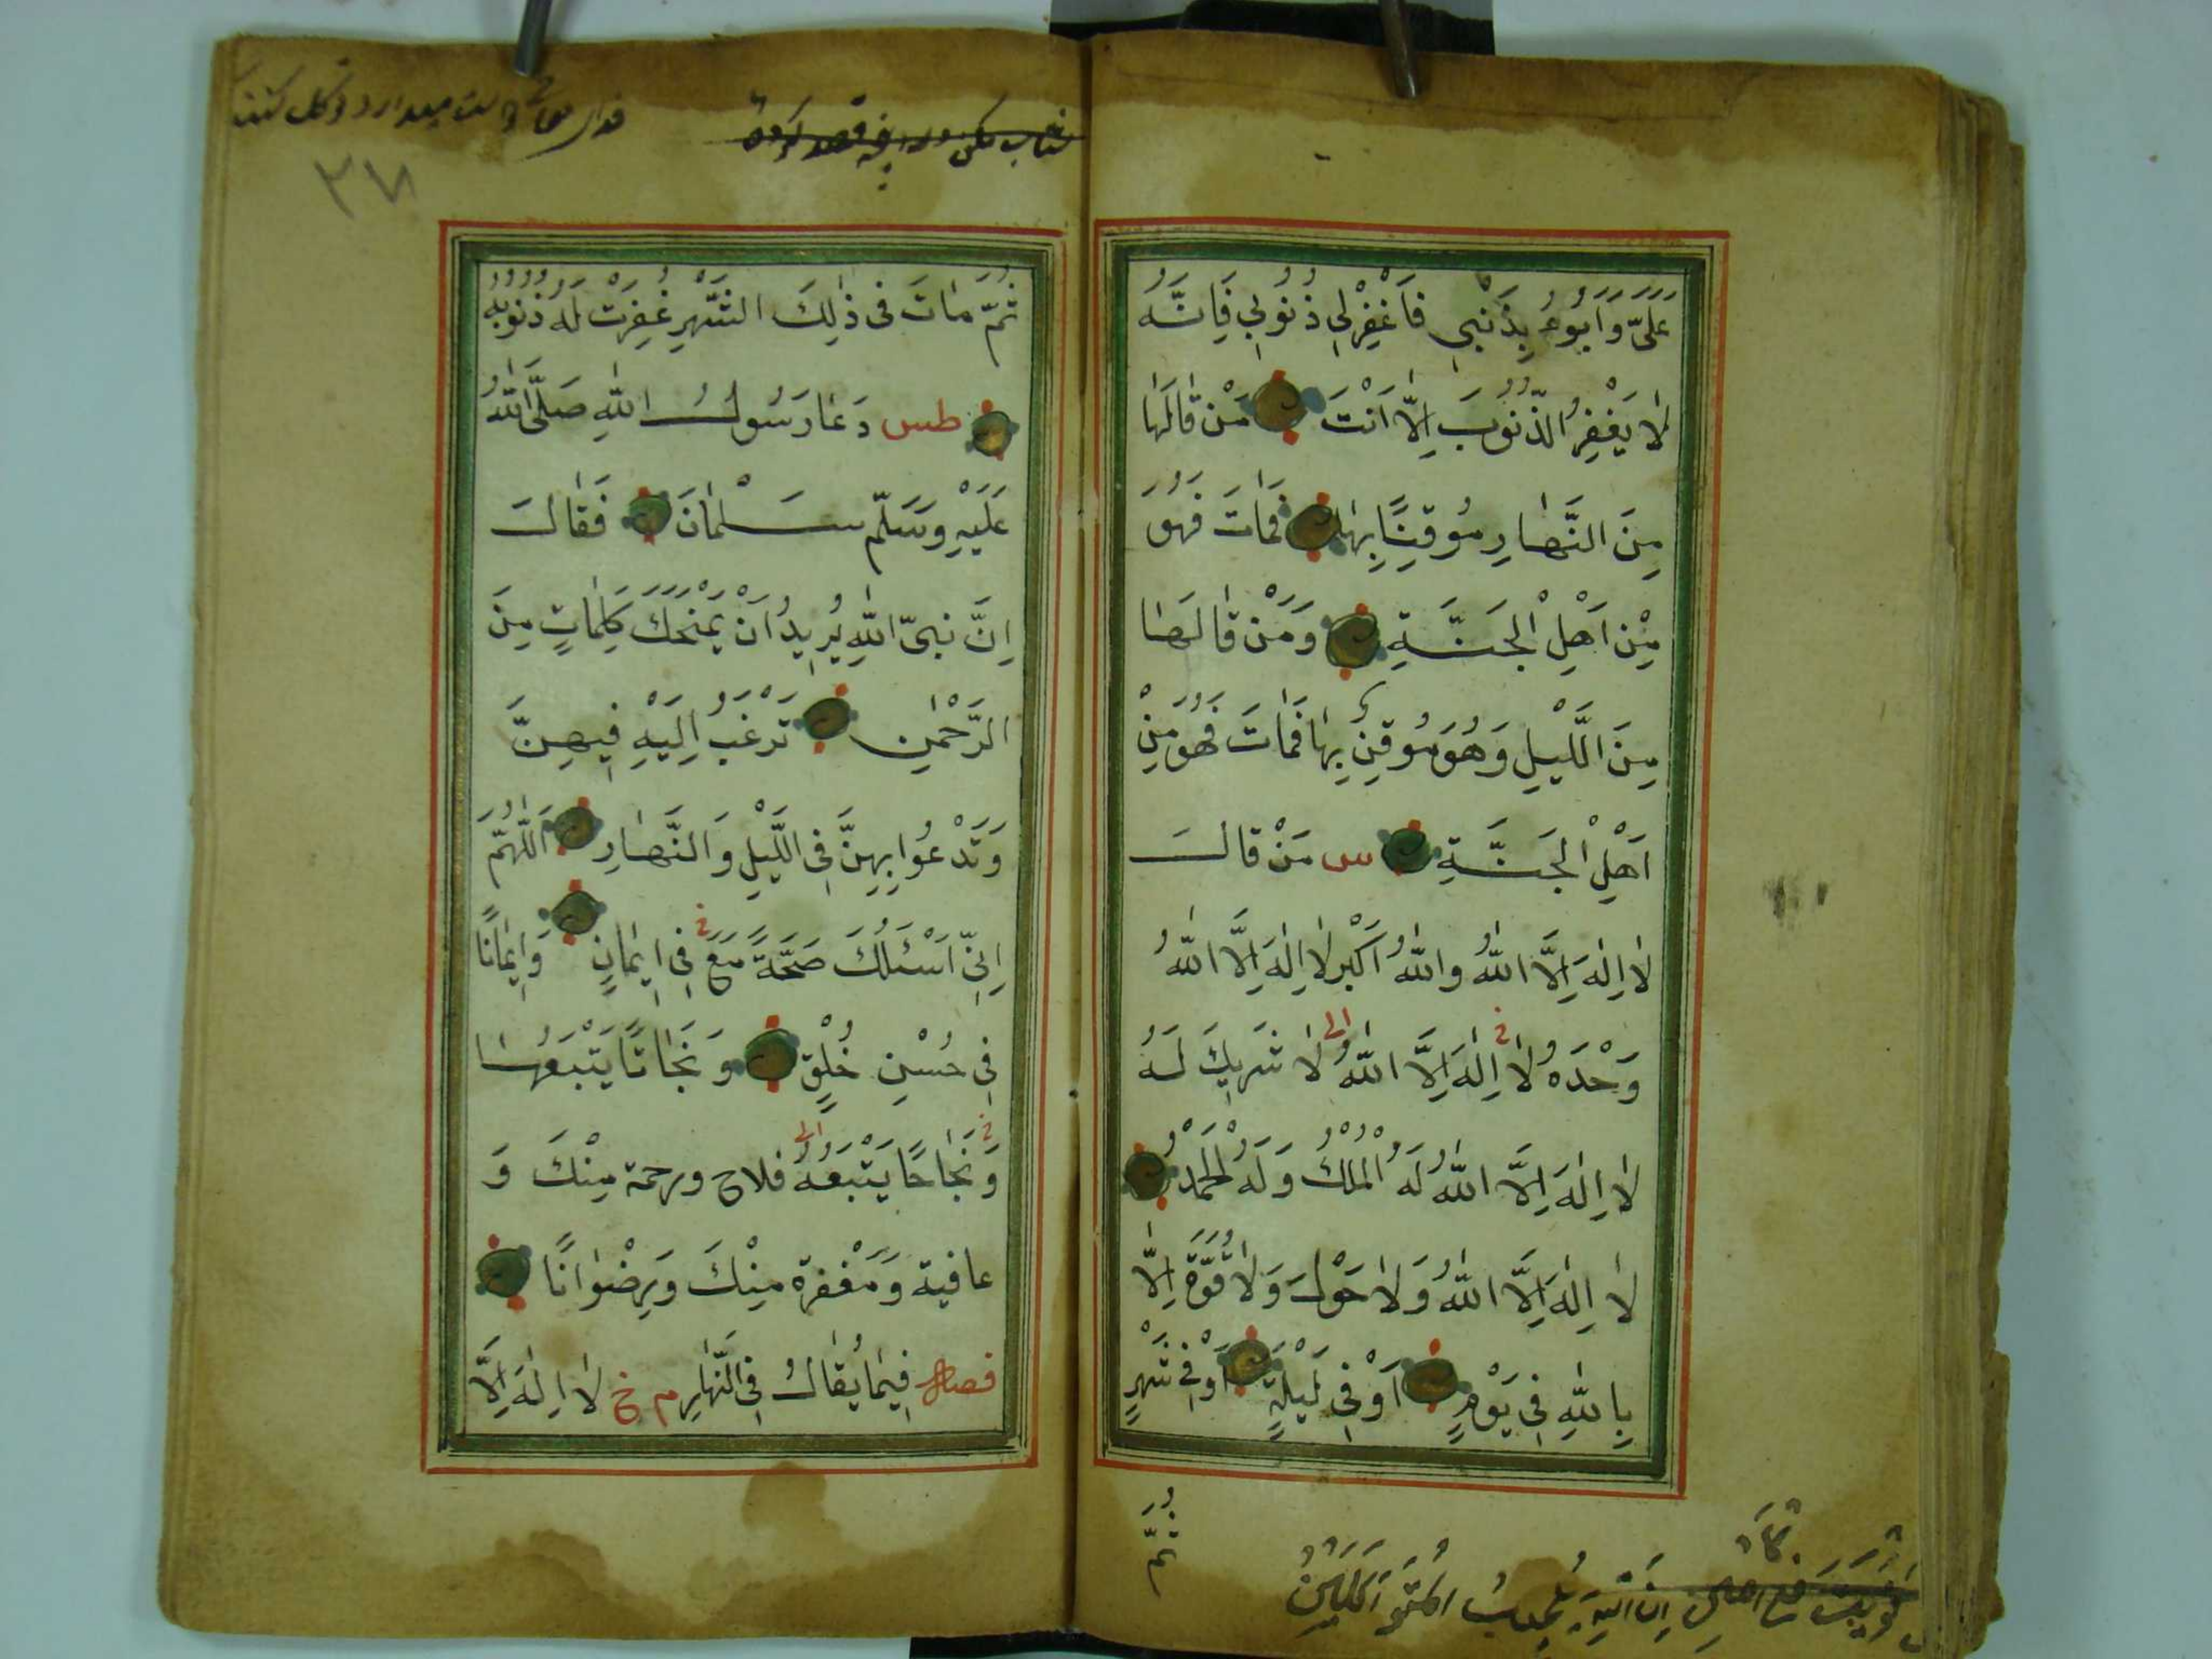 عَلَيَّ وَاَبُوءُ بِذَنْبِي فَاغْفِرْلِي ذُنُوبِي فَاِنَّهُ
لَا يَغْفِرُ الذُّنُوبَ اِلَّا اَنْتَ مَنْ قَالَهَا
مِنَ النَّهَارِ مُوقِنًا بِهَا فَمَاتَ فَهُوَ
مِنْ اَهْلِ الْجَنَّةِ وَمَنْ قَالَهَا
مِنَ اللَّيْلِ وَهُوَ مُوقِنٌ بِهَا فَمَاتَ فَهُوَ مِنْ
اَهْلِ الْجَنَّةِ س مَنْ قَالَ
لَا اِلٰهَ اِلَّا اللّٰهُ وَاللّٰهُ اَكْبَرُ لَا اِلٰهَ اِلَّا اللّٰهُ
وَحْدَهُ لَا اِلٰهَ اِلَّا اللّٰهُ لَا شَرِيكَ لَهُ
لَا اِلٰهَ اِلَّا اللّٰهُ لَهُ الْمُلْكُ وَلَهُ الْحَمْدُ
لَا اِلٰهَ اِلَّا اللّٰهُ وَلَا حَوْلَ وَلَا قُوَّةَ اِلَّا
بِاللّٰهِ فِي يَوْمٍ اَوْ فِي لَيْلَةٍ اَوْ فِي شَهْرٍ
ثُمَّ
اِنَّ اللّٰهَ يُحِبُّ الْمُتَوَكِّلِينَ
٣٧
ثُمَّ مَاتَ فِي ذٰلِكَ الشَّهْرِ غُفِرَتْ لَهُ ذُنُوبُهُ
طس دَعَا رَسُولُ اللّٰهِ صَلَّى اللّٰهُ
عَلَيْهِ وَسَلَّمَ سَلْمَانَ فَقَالَ
اِنَّ نَبِيَّ اللّٰهِ يُرِيدُ اَنْ يَمْنَحَكَ كَلِمَاتٍ مِنَ
الرَّحْمٰنِ تَرْغَبُ اِلَيْهِ فِيهِنَّ
وَتَدْعُوا بِهِنَّ فِي اللَّيْلِ وَالنَّهَارِ اَللّٰهُمَّ
اِنِّي اَسْئَلُكَ صِحَّةً مَعَ فِي اِيمَانٍ وَاِيمَانًا
فِي حُسْنِ خُلْقٍ وَنَجَاتًا يَتْبَعُهَا
وَنَجَاحًا يَتْبَعُهُ فلاح ورحمة مِنْكَ وَ
عافية وَمَغْفرة مِنْكَ وَرِضْوَانًا
فصل فِيمَا يُقَالُ فِي النَّهَارِ م خ لَا اِلٰهَ اِلَّا